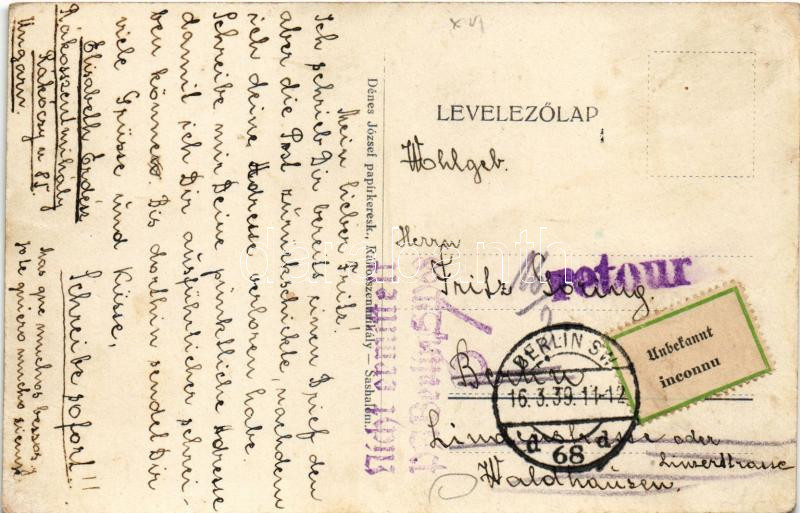 Mein lieber Fritz!
Ich schrieb Dir bereits einen Brief den
aber die Post zurückschickte, nachdem
ich deine Adresse verloren habe.
Schreibe mir Deine pünktliche Adresse
damit ich Dir ausführlicher schrei-
ben könnes. Bis dorthin sendet Dir
viele Grüsse und Küsse,
Elisabeth Erdész
Rákosszentmihály
Rákóczy u 85.
Ungarn
Schreibe sofort!!
mas que muchos besos
yo te quiero mucho siempre
Dénes József papírkeresk., Rákosszentmihály — Sashalom.
LEVELEZŐLAP
Wohlgeb.
Herrn
Fritz Göring.
Berlin
Lindenstrasse oder
Linzerstrasse
Waldhausen.
retour
Unbekannt
inconnu
BERLIN SW
16.3.39.11-12
d 68 d
Nicht ermittelt